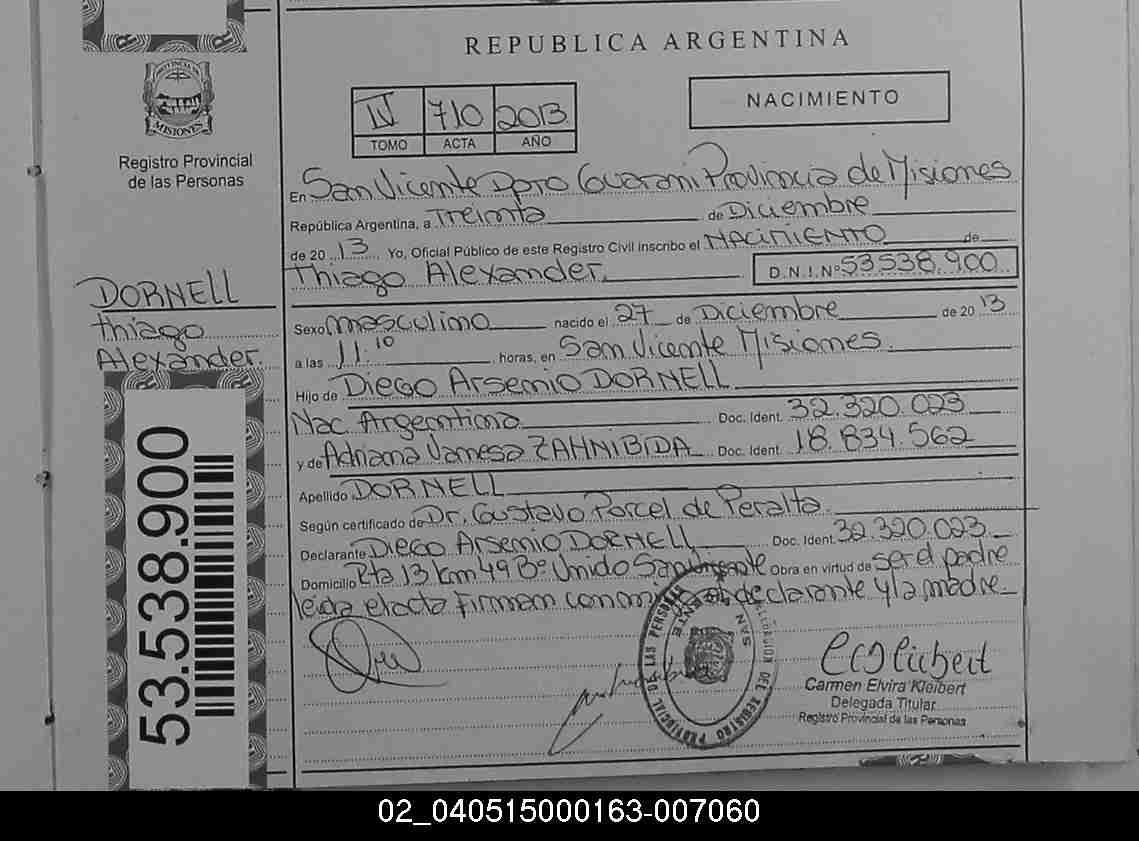 REPUBLICA ARGENTINA
PROVINCIA DE
MISIONES
Registro Provincial
de las Personas
IV 710 2013
TOMO ACTA AÑO
NACIMIENTO
En San Vicente Dpto Guarani Provincia de Misiones
República Argentina, a Treinta de Diciembre
de 2013 Yo, Oficial Público de este Registro Civil inscribo el NACIMIENTO de
Thiago Alexander. D.N.I.Nº 53538.900
DORNELL
Thiago
Alexander.
Sexo masculino nacido el 27 de Diciembre de 2013
a las 11:10 horas, en San Vicente Misiones.
Hijo de Diego Arsenio DORNELL
Nac. Argentina Doc. Ident. 32.320.023
y de Adriana Vanesa ZAHNIBIDA Doc. Ident. 18.834.562
Apellido DORNELL
Según certificado de Dr. Gustavo Porcel de Peralta.
Declarante Diego Arsenio DORNELL Doc. Ident. 32.320.023
Domicilio Rta 13 Km 49 Bº Unido San Vicente Obra en virtud de ser el padre
leida el acta Firman conmigo el declarante y la madre
53.538.900
PROVINCIAL DE LAS PERSONAS
SAN VICENTE
DEL REGISTRO
Carmen Elvira Kleibert
Delegada Titular
Registro Provincial de las Personas
02_040515000163-007060